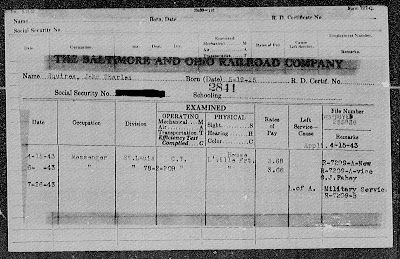 Name Squires, John Charles Born (Date) 5-12-25 R. D. Certif. No.
Social Security No. Schooling 2841
THE BALTIMORE AND OHIO RAILROAD COMPANY
Born, Date R. D. Certificate No.
Social Security No.
Date Occupation Division Rates of Pay Cause Left Service Remarks
EXAMINED
Date Occupation Division OPERATING PHYSICAL Rates of Pay Left Service— Cause File Number
Mechanical M Sight S
Air A Hearing H
Transportation T Color C
Efficiency Test
Complied C
Remarks
Appli. 4-15-43
4-15-43 Messenger St. Louis O.T. 3.68 R-7209-A-New
" " 78-2-FOHY " 3.68 R-7209-A-vice
S.J. Fahey
7-26-43 L.of A. Military Service
R-7209-B